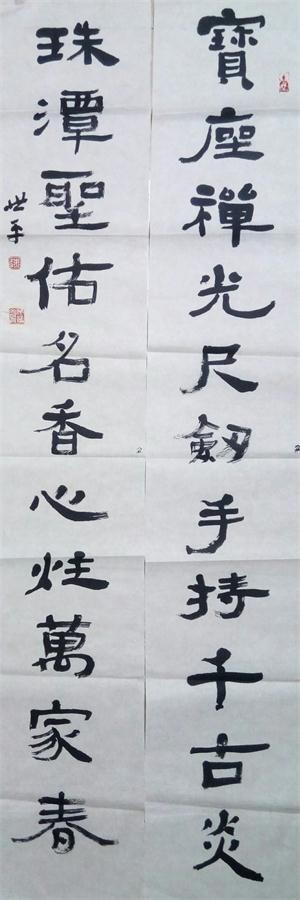 寶座禪光尺劔手持千古炎
珠潭聖佑名香心炷萬家春
世平